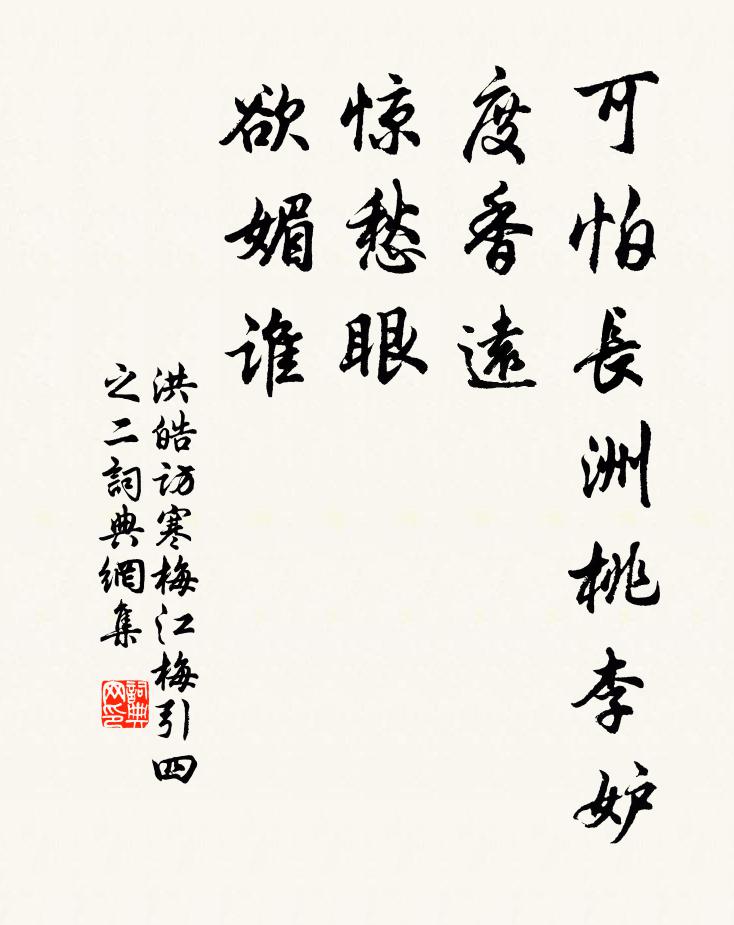 可怕長洲桃李妒
度香遠
惊愁眼
欲媚誰
洪皓訪寒梅江梅引四
之二詞典網集
詞典
网印